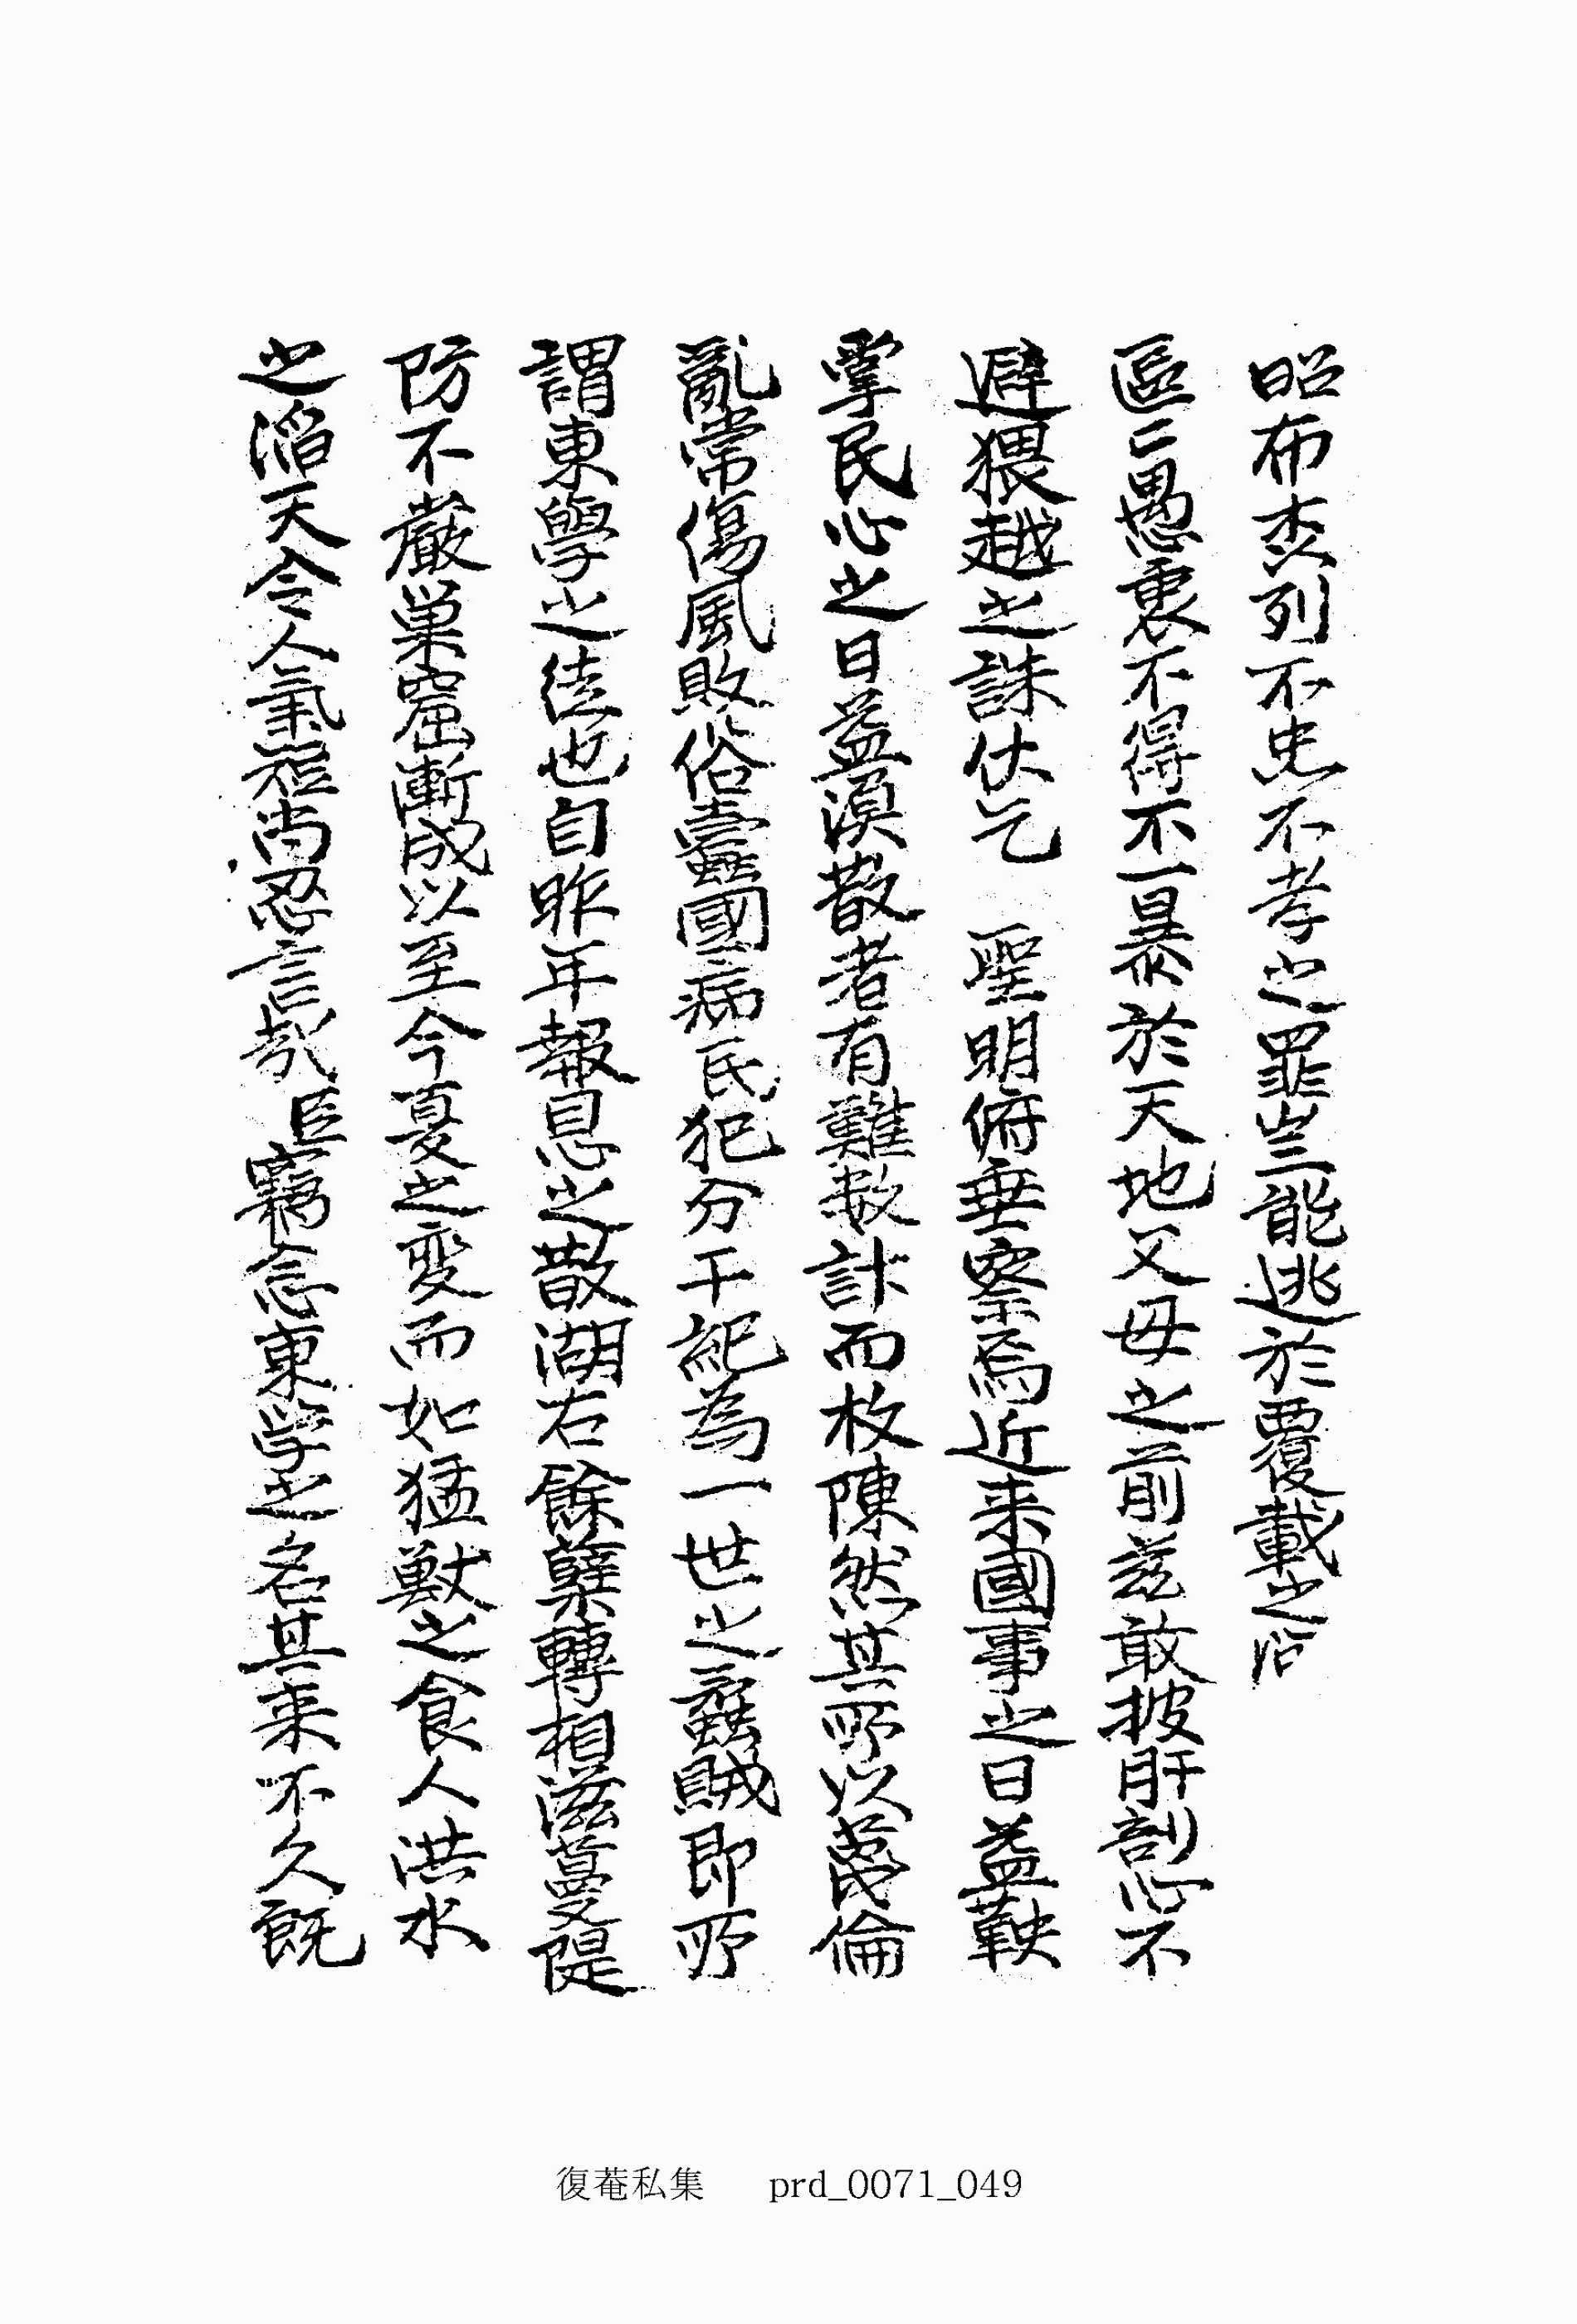 昭布森列不忠不孝之罪豈能逃於覆載之
區〻愚衷不得不一暴於天地父母之前玆敢披肝剖心不
避猥越之誅伏乞 聖明俯垂察焉近来國事之日益鞅
掌民心之日益渙散者有難數計而枚陳然其所以蔑倫
亂常傷風敗俗蠹國病民犯分干紀為一世之蟊賊即所
謂東學之徒也自昨年報恩之散湖右餘孽轉相滋蔓隄
防不嚴巢窟漸成以至今夏之変而如猛獸之食人洪水
之滔天令人氣短尚忍言哉臣竊念東学之名其来不久既
復菴私集 prd_0071_049